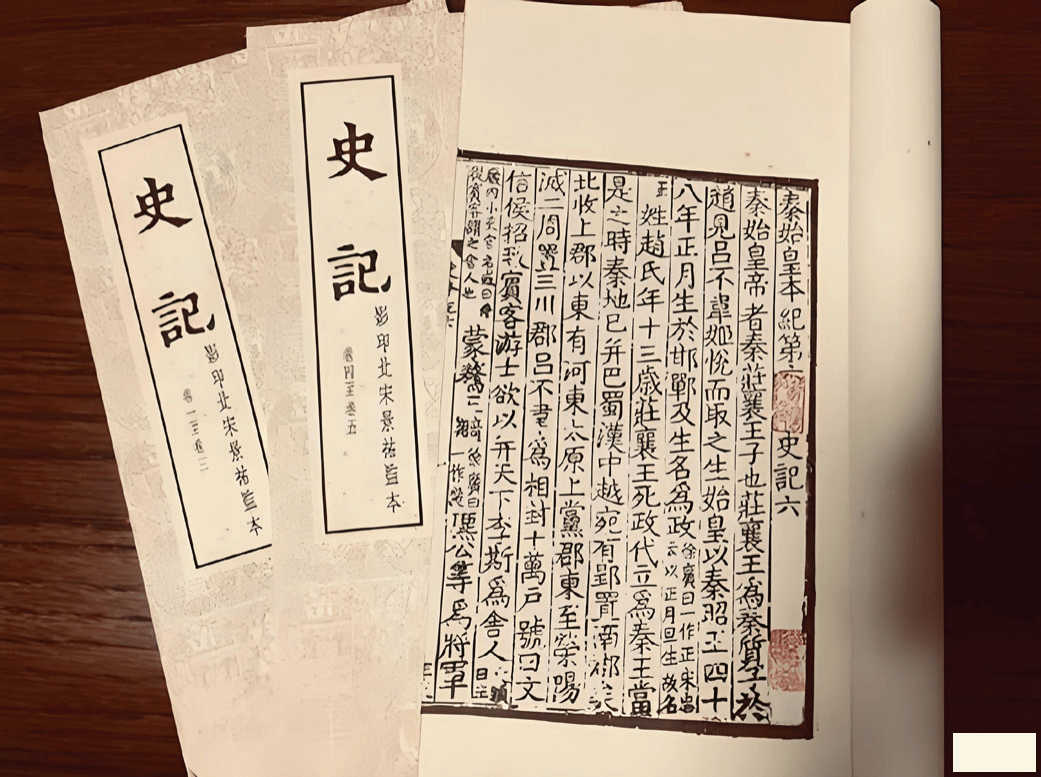 秦始皇本紀第六 史記六
秦始皇帝者秦莊襄王子也莊襄王爲秦質子於
趙見呂不韋姬悅而取之生始皇以秦昭王四十
八年正月生於邯鄲及生名爲政徐廣曰一作正宋忠云以正月旦生故名
正姓趙氏年十三歲莊襄王死政代立爲秦王當
是之時秦地已并巴蜀漢中越宛有郢置南郡矣
北收上郡以東有河東太原上黨郡東至滎陽
滅二周置三川郡呂不韋爲相封十萬戶號曰文
信侯招致賓客游士欲以并天下李斯爲舍人
從賓客謂之舍人也蒙驁王齮徐廣曰一作齕麃公等爲將軍
史記
影印北宋景祐監本
卷四至卷五
史記
影印北宋景祐監本
卷二至卷三